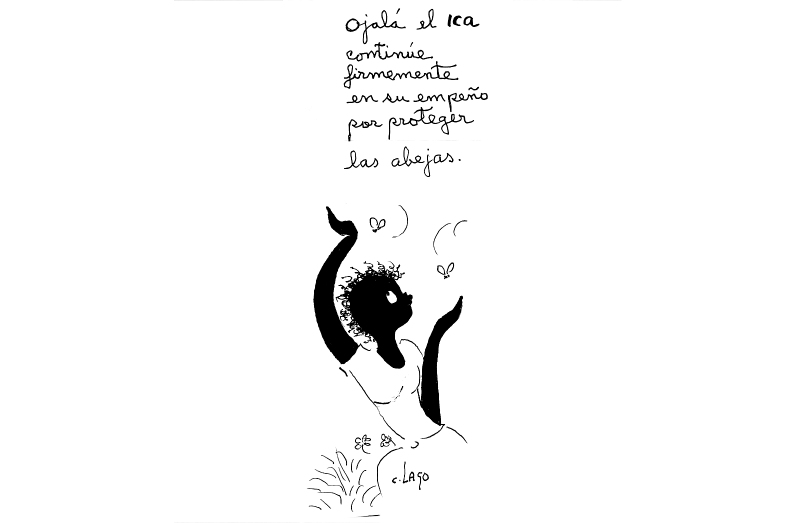 Ojalá el ICA
continúe
firmemente
en su empeño
por proteger
las abejas.
C. LAGO